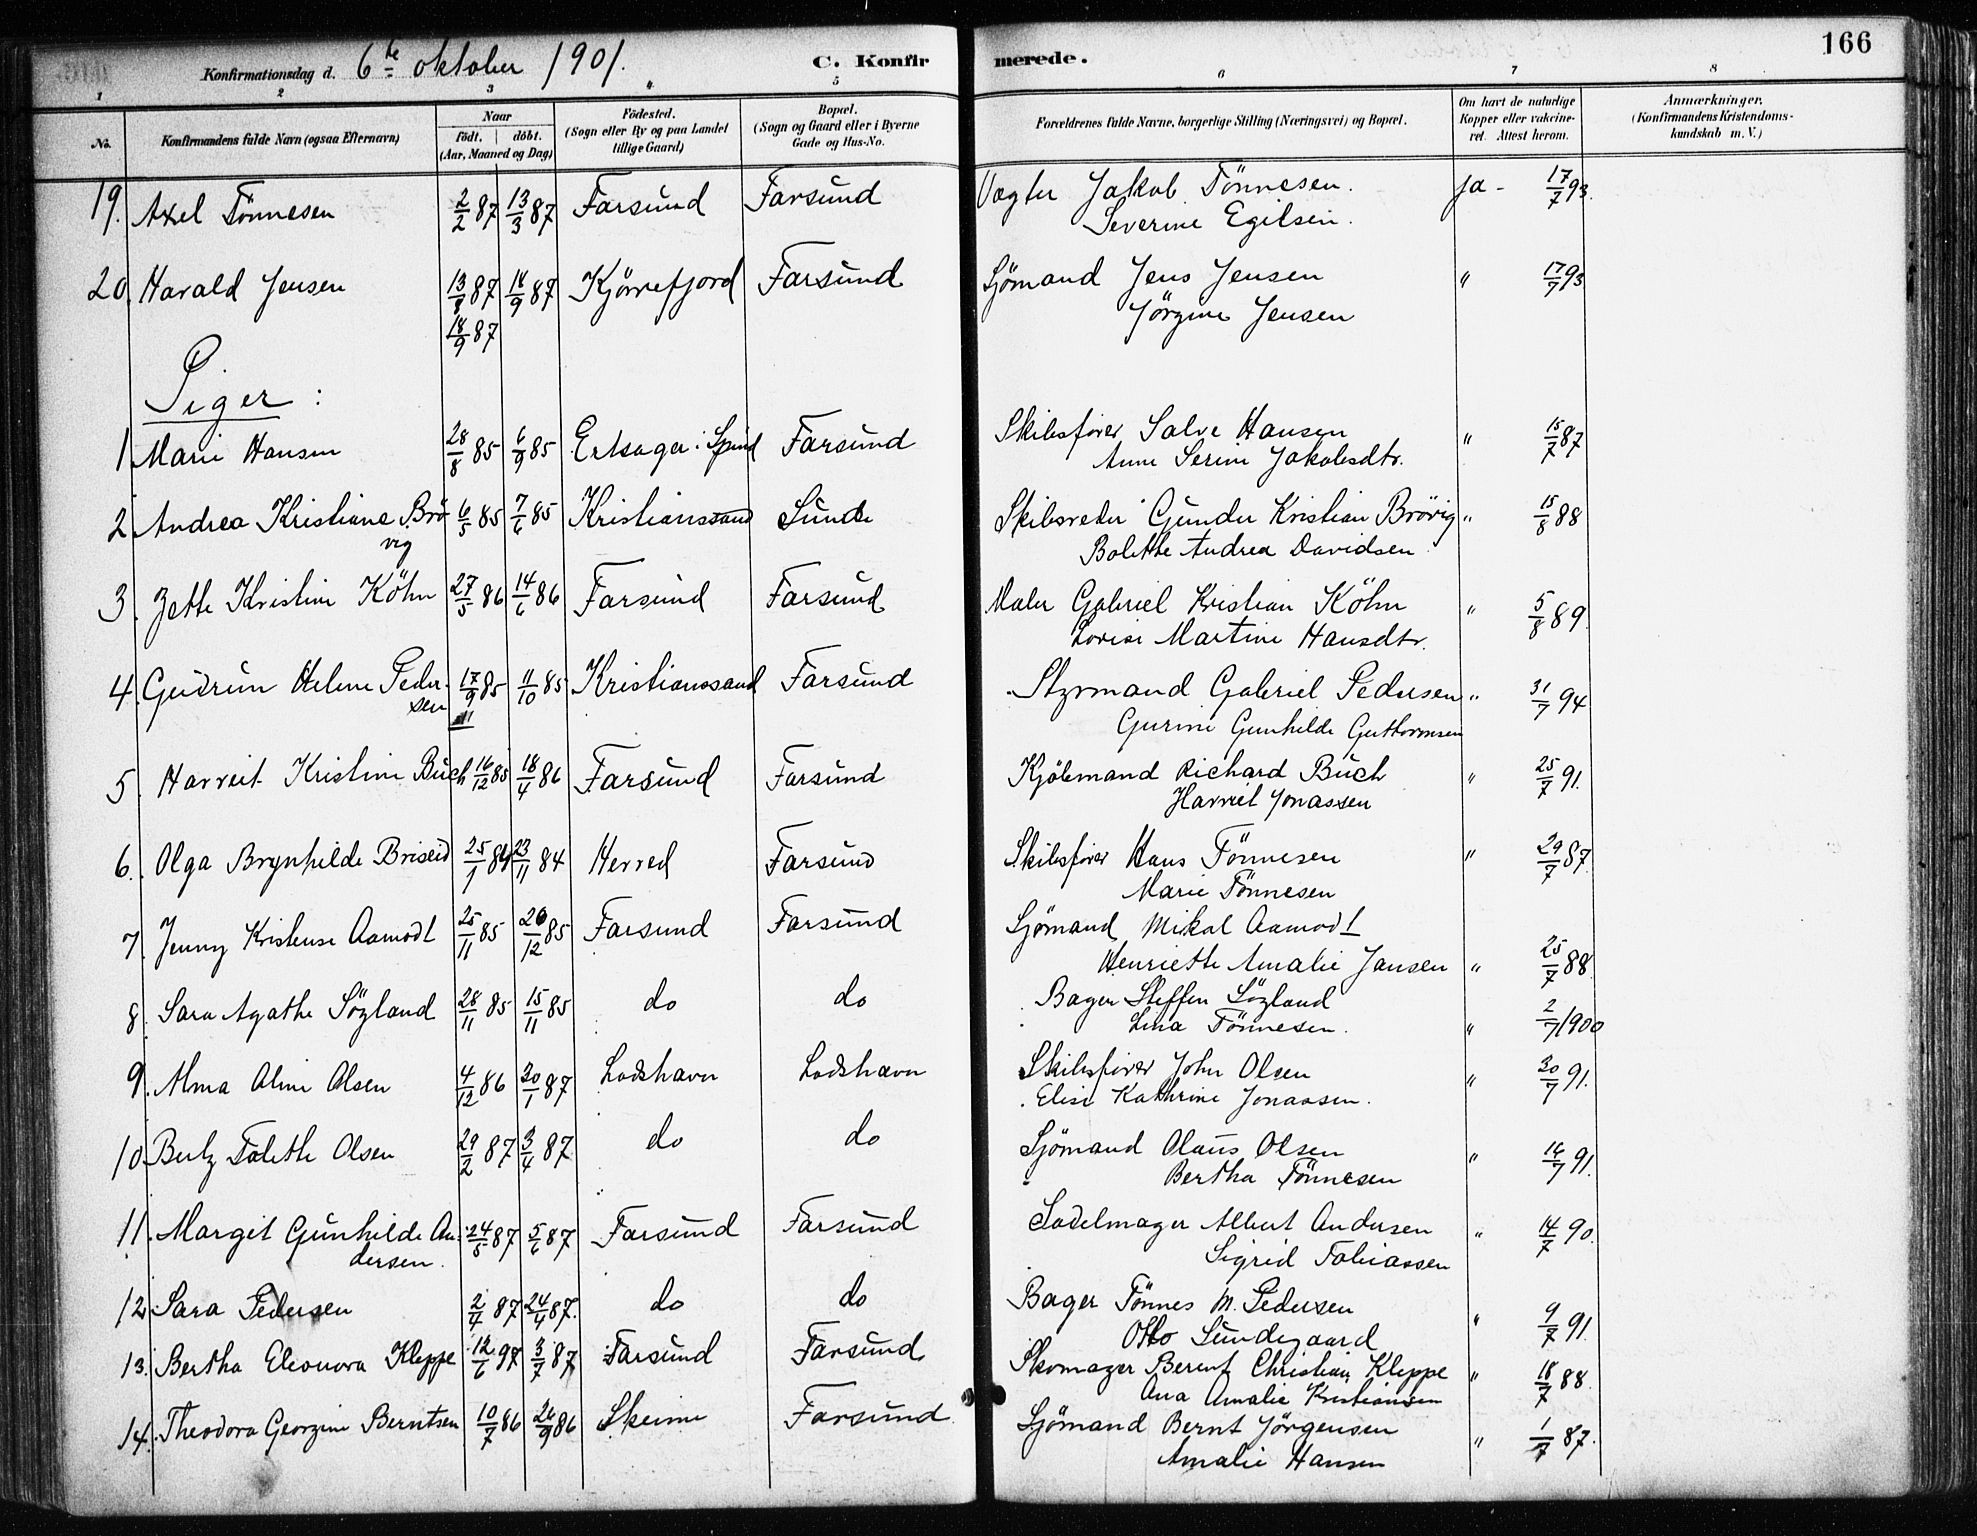 166
Konfirmationsdag d. 6te oktober 1901. C. Konfirmerede.
1 2 3 4 5 6 7 8
No. Konfirmandens fulde Navn (ogsaa Efternavn) Naar födt. döbt. (Aar, Maaned og Dag) Födested. (Sogn eller By og paa Landet tillige Gaard) Bopæl. (Sogn og Gaard eller i Byerne Gade og Hus-No. Forældrenes fulde Navne, borgerlige Stilling (Næringsvei) og Bopæl. Om havt de naturlige Kopper eller vakcineret. Attest herom. Anmærkninger. (Konfirmandens Kristendomskundskab m. V.)
19. Axel Tönnesen 2/2 87 13/3 87 Farsund Farsund Vægter Jakob Tönnesen. Ja - 17/7 93.
Severine Egilsen.
20. Harald Jensen 13/8 87 18/9 87 Kjörrefjord Farsund Sjömand Jens Jensen " 17/7 93
18/9 87 Jörgine Jensen
Piger :
1 Marie Hansen 28/8 85 6/9 85 Ertsaga i Spind Farsund Skibsfører Salve Hansen " 15/7 87
Anne Serine Jakobsdtr.
2 Andrea Kristiane Brövig 6/5 85 7/6 85 Kristianssand Sunde Skibsreder Gunder Kristian Brövig " 15/8 88
Bolette Andrea Davidsen
3. Zette Kristine Köhn 27/5 86 14/6 86 Farsund Farsund Maler Gabriel Kristian Köhn " 5/8 89.
Lovise Martine Hansdtr.
4. Gudrun Helene Pedersen 17/9 85 11/10 85 Kristianssand Farsund Styrmand Gabriel Pedersen " 31/7 94
11 Gurine Gunhilde Guttormsen
5. Harreit Kristine Buch 16/12 85 18/4 86 Farsund Farsund Kjöbmand Richard Buch " 25/7 91.
Harriet Jonassen
6. Olga Brynhilde Briseid 25/1 84 23/11 84 Herred Farsund Skibsfører Hans Tönnesen " 29/7 87.
Marie Tönnesen
7. Jenny Kristense Aamodt 25/11 85 26/12 85 Farsund Farsund Sjömand Mikal Aamodt
Henriette Amalie Jansen " 25/7 88.
8. Sara Agathe Sögland 28/11 85 15/11 85 do do Bager Steffen Sögland
Lina Tönnesen. " 2/7 1900
9. Alma Oline Olsen 4/12 86 30/1 87 Lodshavn Lodshavn Skibsfører John Olsen " 30/7 91.
Elise Kathrine Jonassen.
10. Betzy Tolette Olsen 29/2 87 3/4 87. do do Sjömand Olaus Olsen " 16/7 91.
Bertha Tönnesen
11. Margit Gunhilde Andersen. 24/5 87 5/6 87 Farsund Farsund Sadelmager Albert Andersen " 14/7 90.
Sigrid Tobiassen
12. Sara Pedersen 2/4 87 24/4 87. do do Bager Tönnes M. Pedersen " 9/7 91.
Otto Sundegaard
13. Bertha Eleonora Kleppe 12/6 97 3/7 87 Farsund Farsund. Skomager Berent Christian Kleppe " 18/7 88.
Ana Amalie Kristiansen
14. Theodora Georgine Berntsen 10/7 86 26/9 86 Skeime Farsund. Sjömand Bernt Jörgensen " 1/7 87.
Amalie Hansen